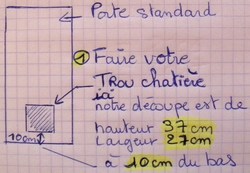 Porte standard
① Faire votre
Trou chatière
ici
notre découpe est de
hauteur 37cm
Largeur 27cm
à 10cm du bas
10cm